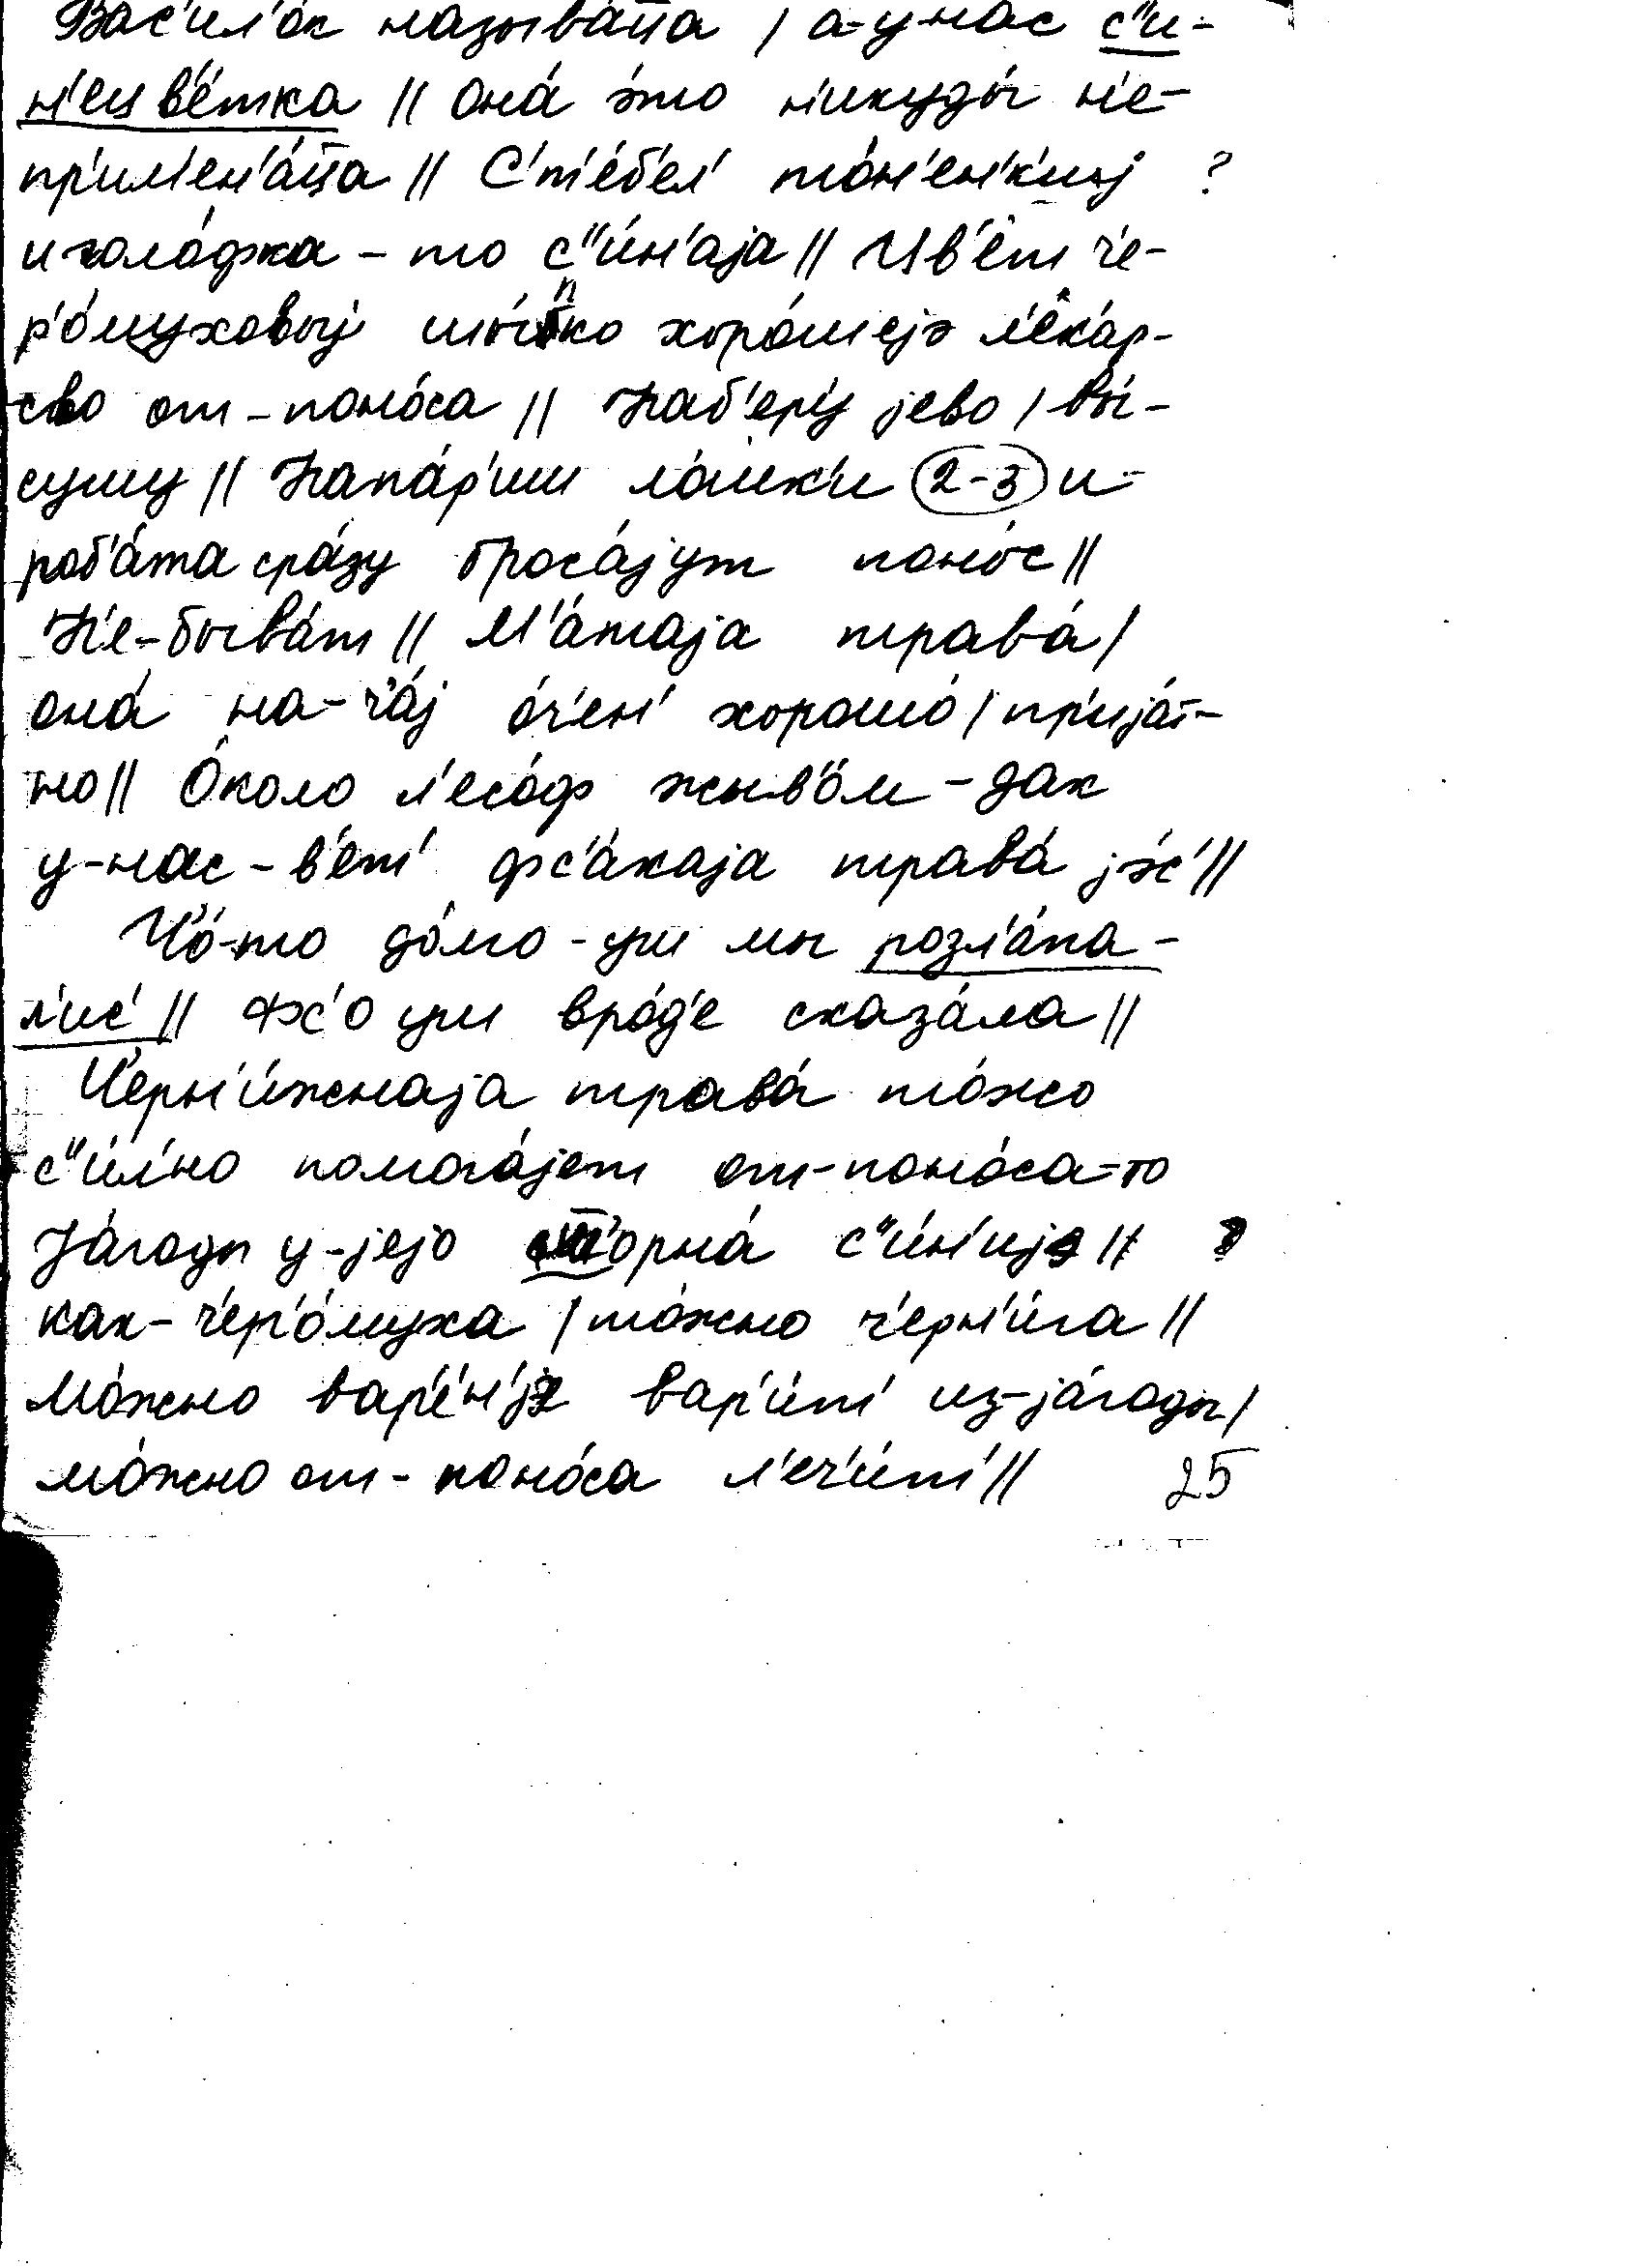 Вас'ил'о́к называ́ц̄а / а-у-нас с"и-
н'ецв'е́тка // она́ э́то никуды́ н'е-
прим'ен'а́ц̄а // С'т'е́б'ел' то́н'ен'к'иј ?
и голо́фка-то с"и́н'аја // Цв'ет ч'е-
р'о́муховыј шы́пко хоро́шеjэ л'ека́р-
сво от-поно́са // Наб'еру́ јево / вы́-
сушу // Напа́р'иш ло́шк'и 2-3 и-
роб'а́та сра́зу броса́јут поно́с //
Н'е-быва́т // М'а́таја трава́ /
она́ на-ч'а́ј о́ч'ен' хорошо́ / пр'ија́т-
но // О́коло л'есо́ф жыв'о́м-дак
у-нас-в'ет' фс'а́каја трава́ јэс' //
Ч'о́-то до́лго-уш мы розл'а́па-
л'ис' // Фс'о уш вро́д'е сказа́ла //
Ч'ерн'и́жнаја трава́ то́жо
с"и́л'но помога́јет от-поно́са-то
Jа́годы у-јејо ч'орна́ с"и́н'иjэ // ?
как-ч'ер'о́муха / то́жно ч'ерн'и́га //
Мо́жно вар'е́н'jэ вар'и́т' из-ја́годы /
мо́жно от-поно́са л'еч'и́т' // 25